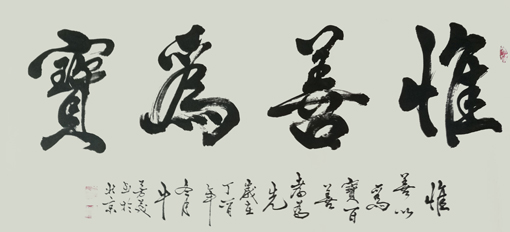 惟善為寶
惟
善以
為
寶百
善
孝為
先
歲在
丁酉
年
冬月
牛
書於
北京